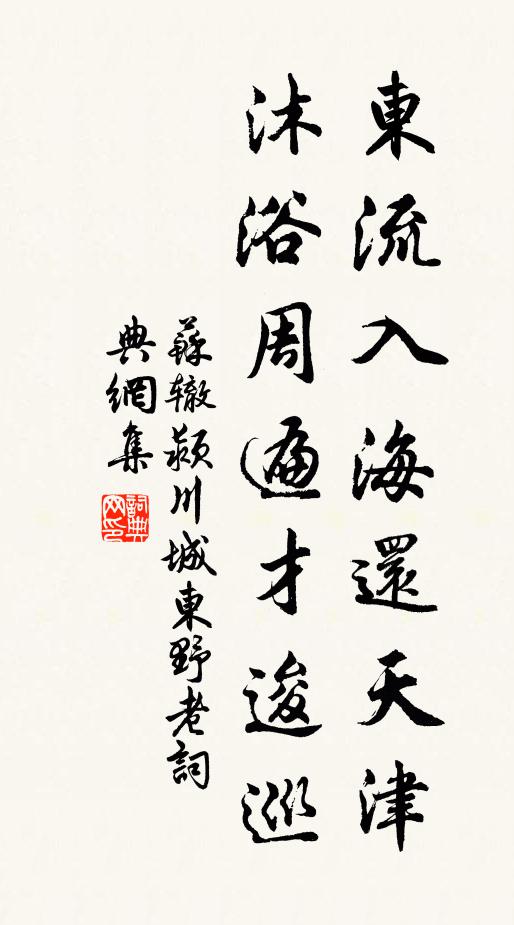 東流入海還天津
沐浴周遍才逡巡
蘇辙颍川城東野老詞
典網集
詞典
网印